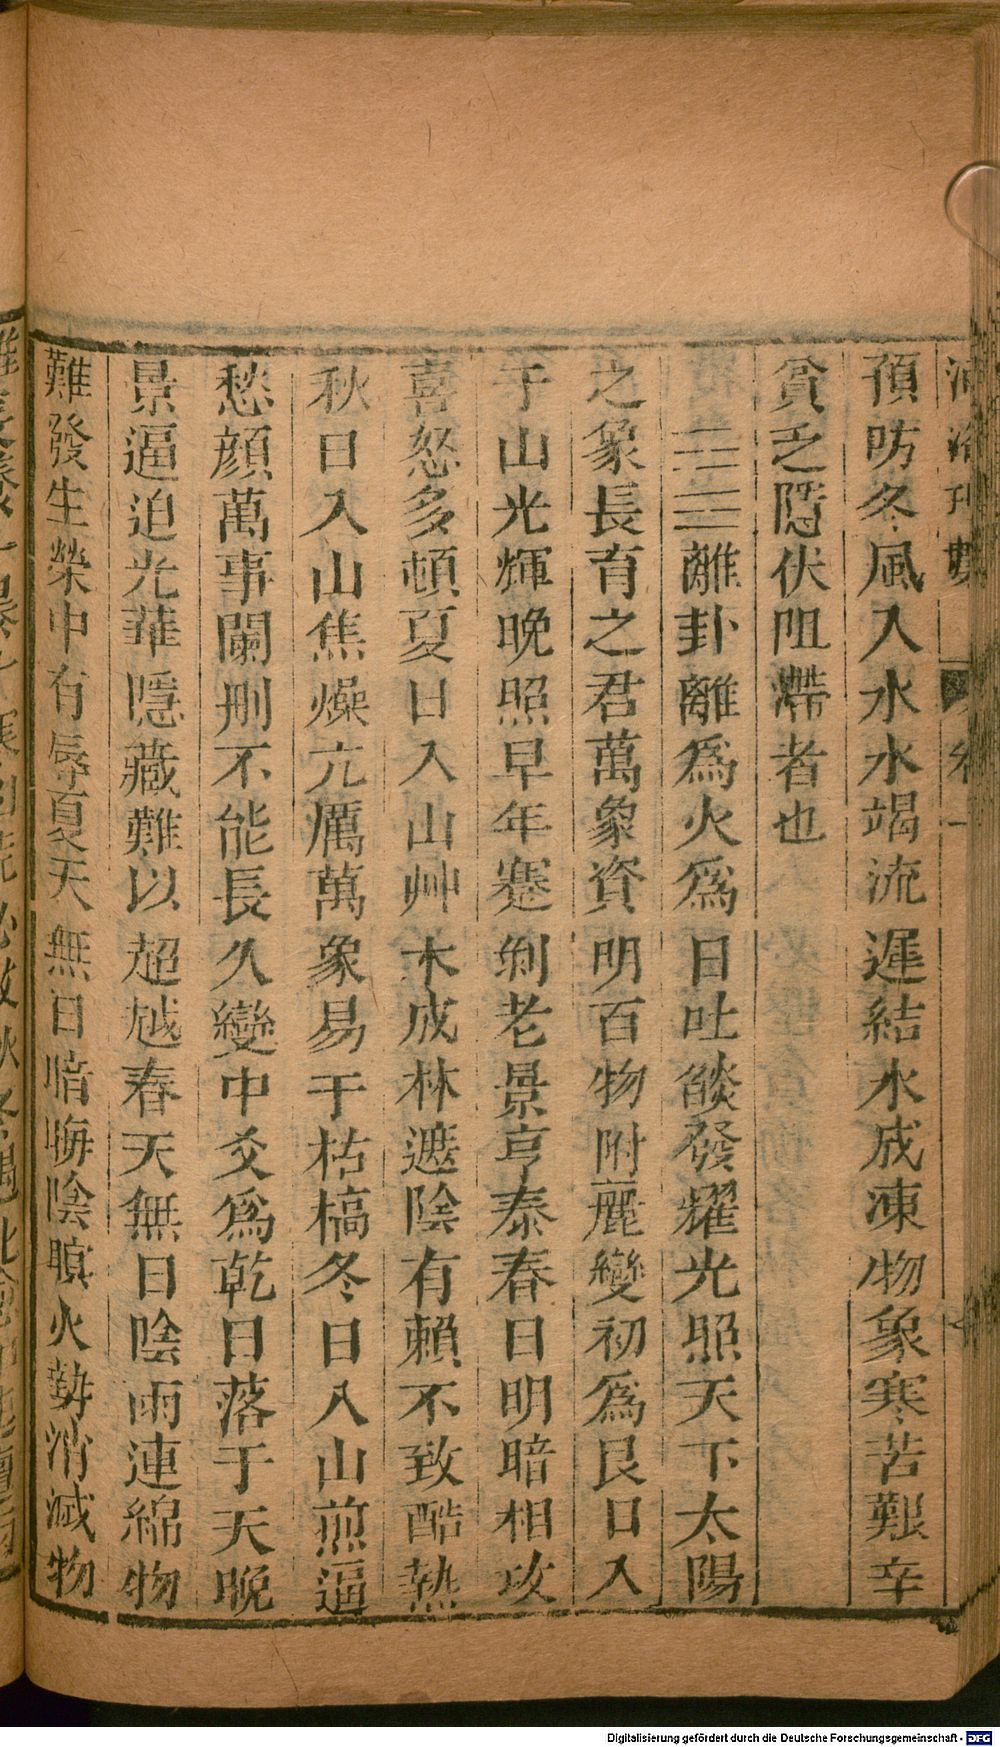 預防冬風入水水竭流遲結水成凍物象寒苦艱辛
貧乏隱伏阻滯者也
☲☲離卦離爲火爲日吐燄發耀光照天下太陽
之象長育之君萬象資明百物附麗變初爲艮日入
于山光輝晚照早年蹇剝老景亨泰春日明暗相攻
喜怒多頓夏日入山艸木成林遮陰有賴不致酷熱
秋日入山焦燥亢厲萬象易于枯槁冬日入山煎逼
愁顏萬事闌刪不能長久變中爻爲乾日落于天晚
景逼迫光華隱藏難以超越春天無日陰雨連綿物
難發生榮中有辱夏天無日暗晦陰暝火勢消滅物
Digitalisierung gefördert durch die Deutsche Forschungsgemeinschaft - DFG